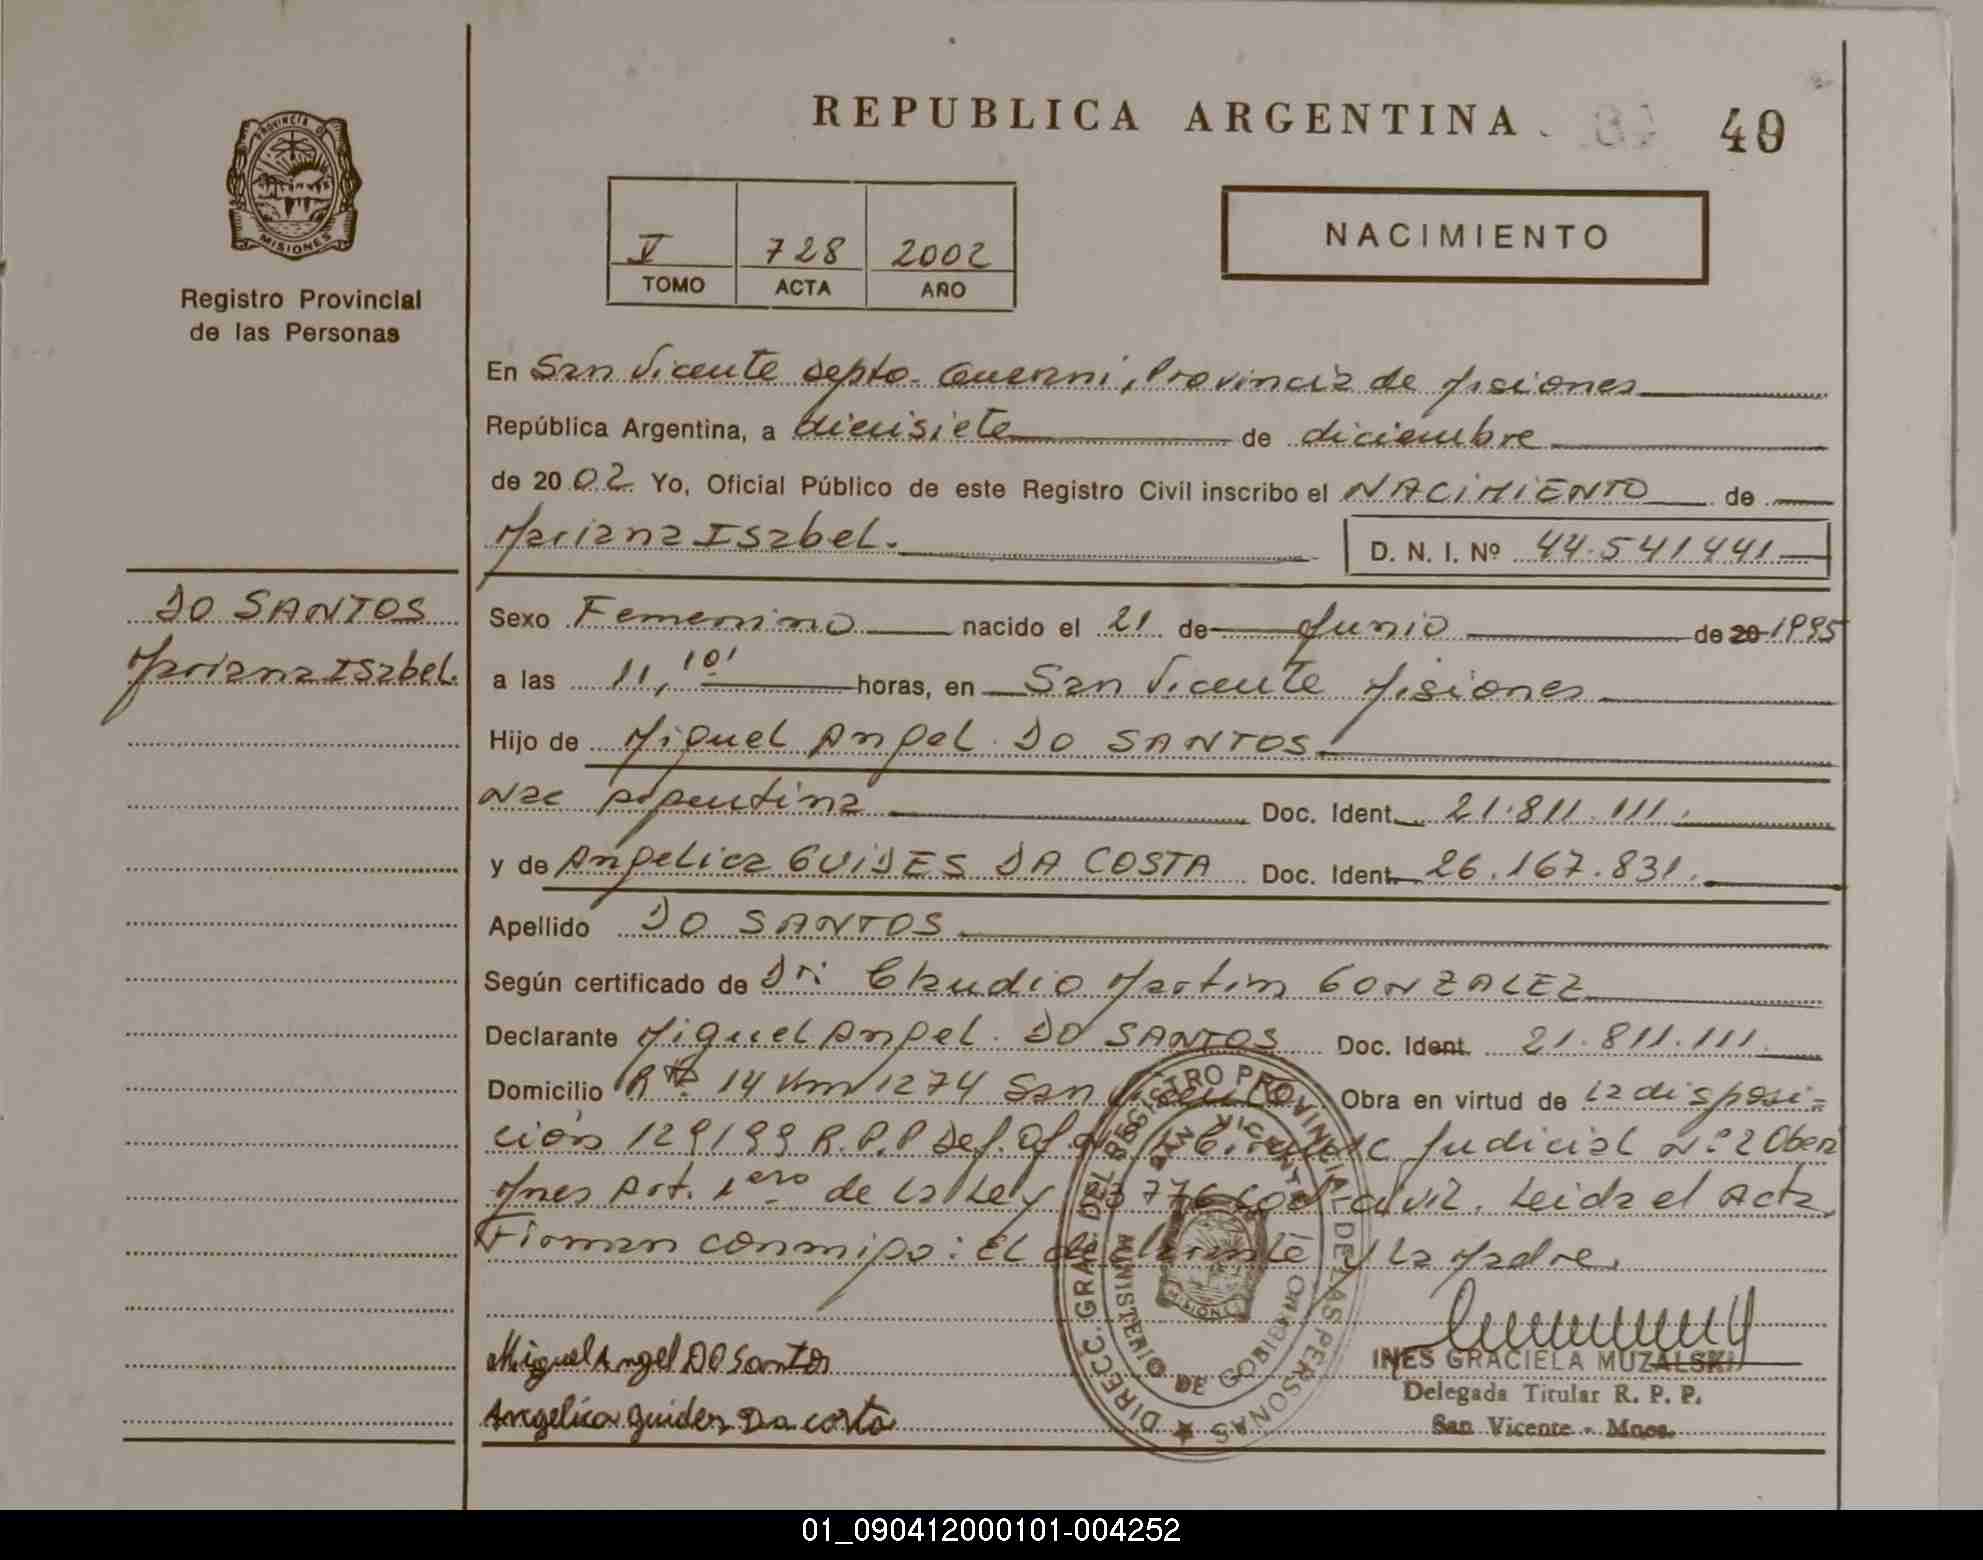 REPUBLICA ARGENTINA
49
PROVINCIA DE
MISIONES
Registro Provincial
de las Personas
V 728 2002
TOMO ACTA AÑO
NACIMIENTO
En San Vicente Depto. Guarani, Provincia de Misiones
República Argentina, a diecisiete de diciembre
de 2002. Yo, Oficial Público de este Registro Civil inscribo el NACIMIENTO de
Mariana Isabel. D. N. I. Nº 44.541441
DO SANTOS
Mariana Isabel.
Sexo Femenino nacido el 21 de Junio de 20 1995
a las 11,10' horas, en San Vicente Misiones
Hijo de Miguel Angel DO SANTOS
Nac Argentina Doc. Ident. 21.811.111.
y de Angelica GUIDES DA COSTA Doc. Ident. 26.167.831.
Apellido DO SANTOS
Según certificado de Dr: Claudio Martin GONZALEZ
Declarante Miguel Angel DO SANTOS Doc. Ident. 21.811.111.
Domicilio Rta. 14 Km 1274 San Vicente Obra en virtud de la disposi-
ción 129/99 R.P.P Def. Of. Judicial Nº 2 Oberá
Mnes Art. 1ero de la Ley civil. Leida el Acta
Firman conmigo: El declarante y la Madre.
DIRECC. GRAL. DEL REGISTRO PROVINCIAL DE LAS PERSONAS
SAN VICENTE
MINISTERIO DE GOBIERNO
MISIONES
Miguel Angel DO Santos
Angelica guides Da costa
INES GRACIELA MUZALSKI
Delegada Titular R. P. P.
San Vicente - Mnes.
01_090412000101-004252